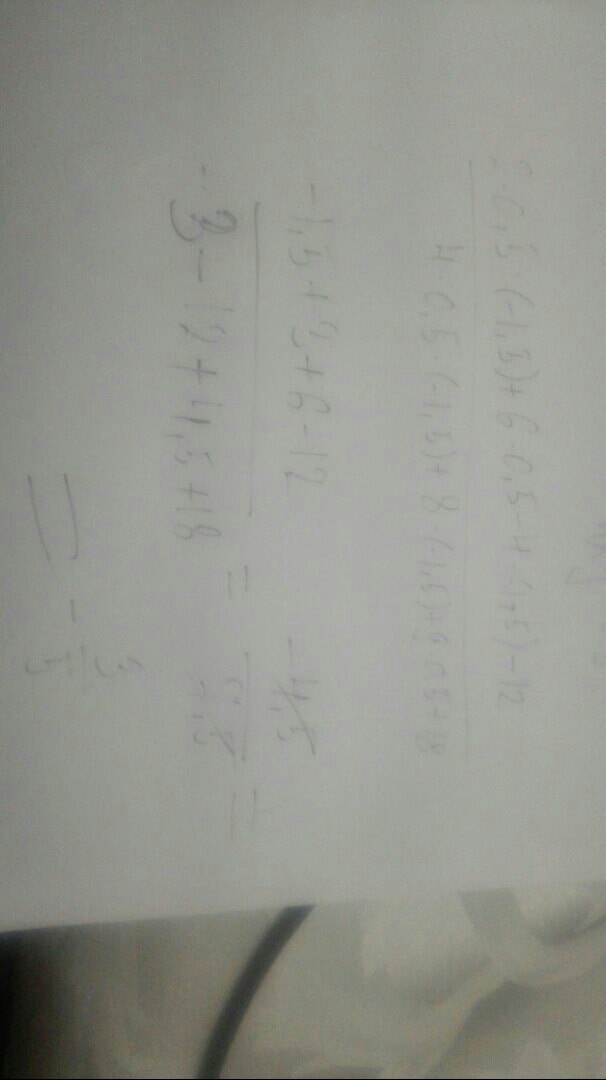 2·0,5·(-1,5)+6·0,5-4·(-1,5)-12
4·0,5·(-1,5)+8·(-1,5)+9·0,5+18
-1,5+3+6-12
-3-12+4,5+18
= -4,5
7,5 =
= - 3
5